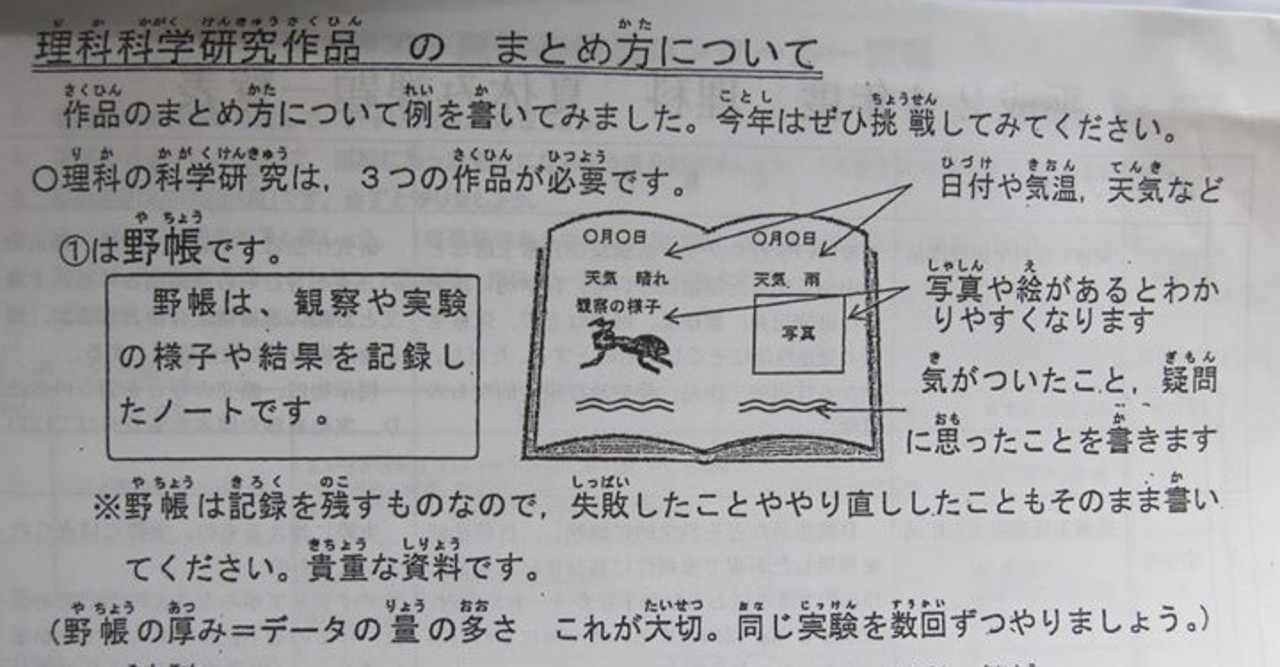 理科科学研究作品　の　まとめ方について
作品のまとめ方について例を書いてみました。今年はぜひ挑戦してみてください。
〇理科の科学研究は，３つの作品が必要です。
①は野帳です。
野帳は、観察や実験
の様子や結果を記録し
たノートです。
〇月〇日
天気　晴れ
観察の様子
〇月〇日
天気　雨
写真
日付や気温，天気など
写真や絵があるとわか
りやすくなります
気がついたこと，疑問
に思ったことを書きます
※野帳は記録を残すものなので，失敗したことややり直ししたこともそのまま書い
てください。貴重な資料です。
（野帳の厚み＝データの量の多さ　これが大切。同じ実験を数回ずつやりましょう。）